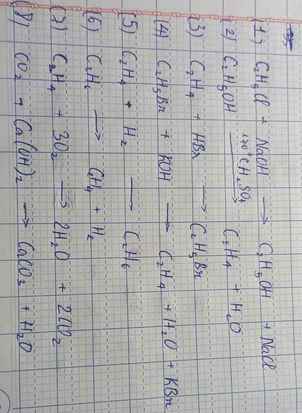 (1) C₂H₅Cl + NaOH → C₂H₅OH + NaCl
(2) C₂H₅OH 170°C H₂SO₄ → C₂H₄ + H₂O
(3) C₂H₄ + HBr → C₂H₅Br
(4) C₂H₅Br + KOH → C₂H₄ + H₂O + KBr
(5) C₂H₄ + H₂ → C₂H₆
(6) C₂H₆ → C₂H₄ + H₂
(7) C₂H₄ + 3O₂ → 2H₂O + 2CO₂
(8) CO₂ + Ca(OH)₂ → CaCO₃ + H₂O